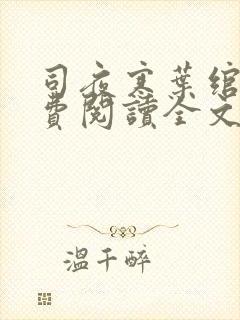 司夜寒葉綰
費閱讀全文
溫千醉